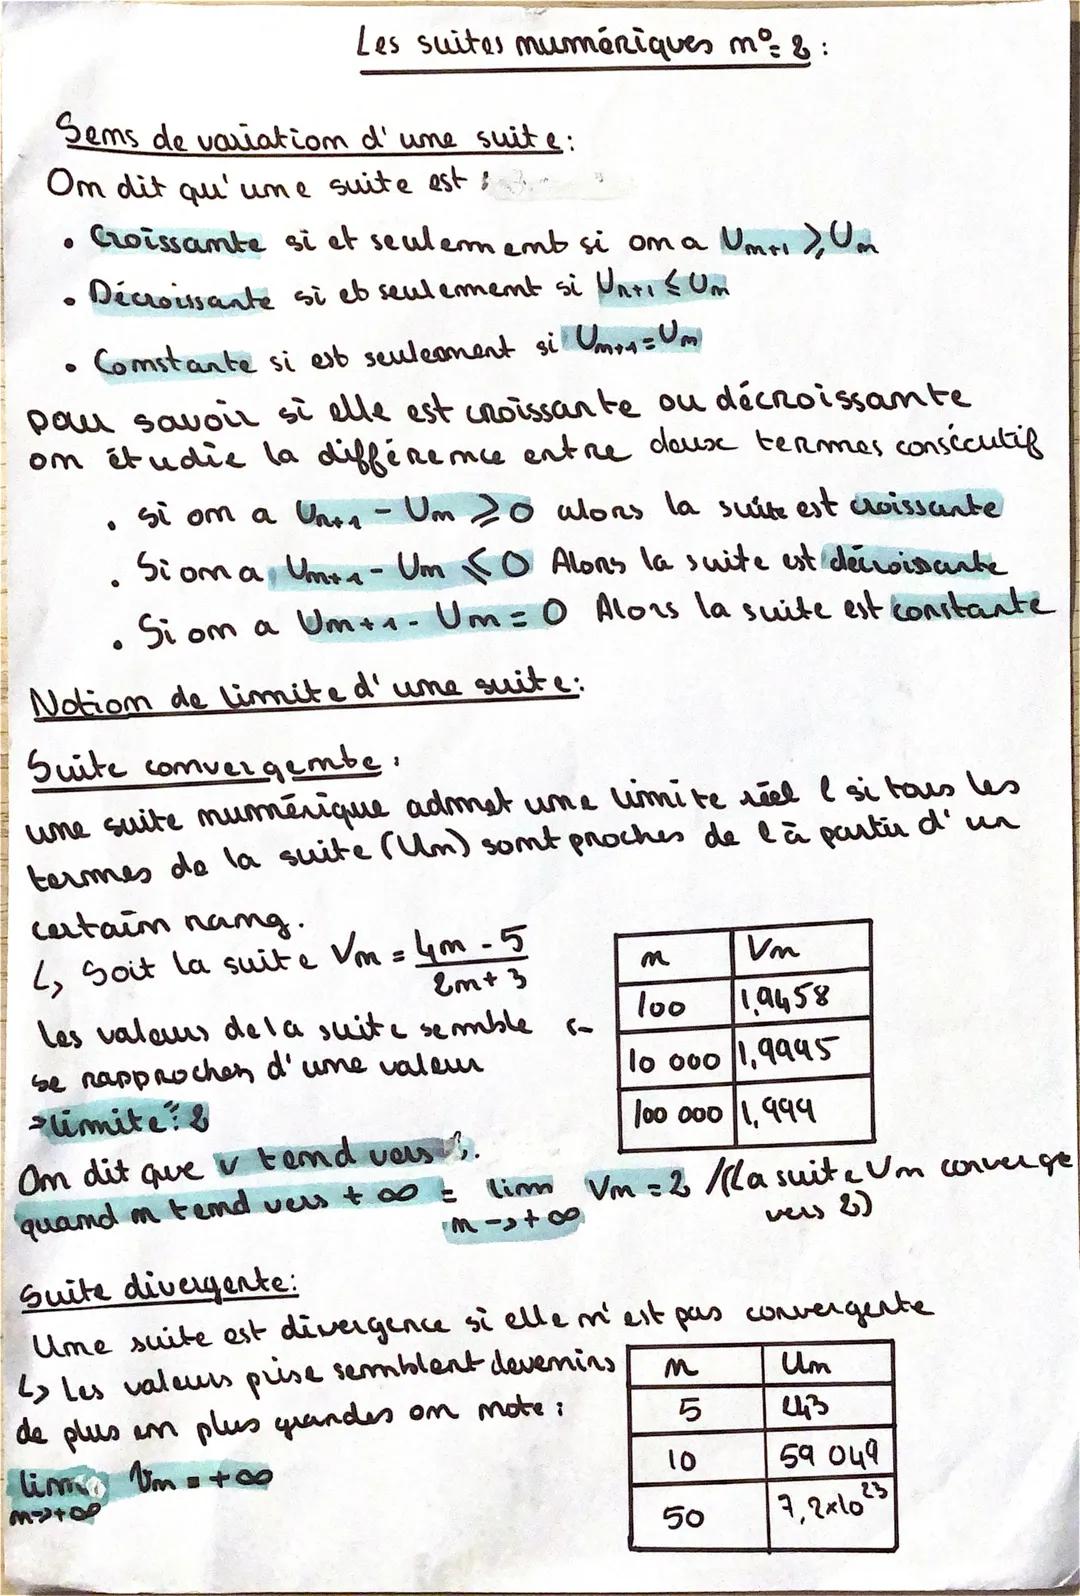 Les suites numériques n°= 2 :
Sens de variation d'une suite :
On dit qu'une suite est :
• Croissante si et seulement si on a Un+1 ⩾ Un
• Décroissante si et seulement si Un+1 ≤ Un
• Constante si est seulement si Un+1 = Un
pour savoir si elle est croissante ou décroissante
on étudie la différence entre deux termes consécutif
• si on a Un+1 - Un ⩾ 0 alors la suite est croissante
• Si on a Un+1 - Un ⩽ 0 Alors la suite est décroissante
• Si on a Un+1 - Un = 0 Alors la suite est constante
Notion de limite d'une suite :
Suite convergente :
une suite numérique admet une limite réel l si tous les
termes de la suite (Un) sont proches de l à partir d'un
certain rang.
↳ Soit la suite Vn = 4n - 5 / 2n + 3
n Vn
100 1,9458
10 000 1,9995
100 000 1,999
les valeurs de la suite semble
se rapprocher d'une valeur
→ limite : 2
On dit que v tend vers 2.
quand n tend vers + ∞ = lim Vn = 2 /(la suite Un converge
n -> + ∞ vers 2)
Suite divergente :
Une suite est divergence si elle n'est pas convergente
↳ Les valeurs prise semblent devenirs
de plus en plus grandes on note :
lim Un = + ∞
n -> + ∞
n Un
5 243
10 59 049
50 7,2x10^23